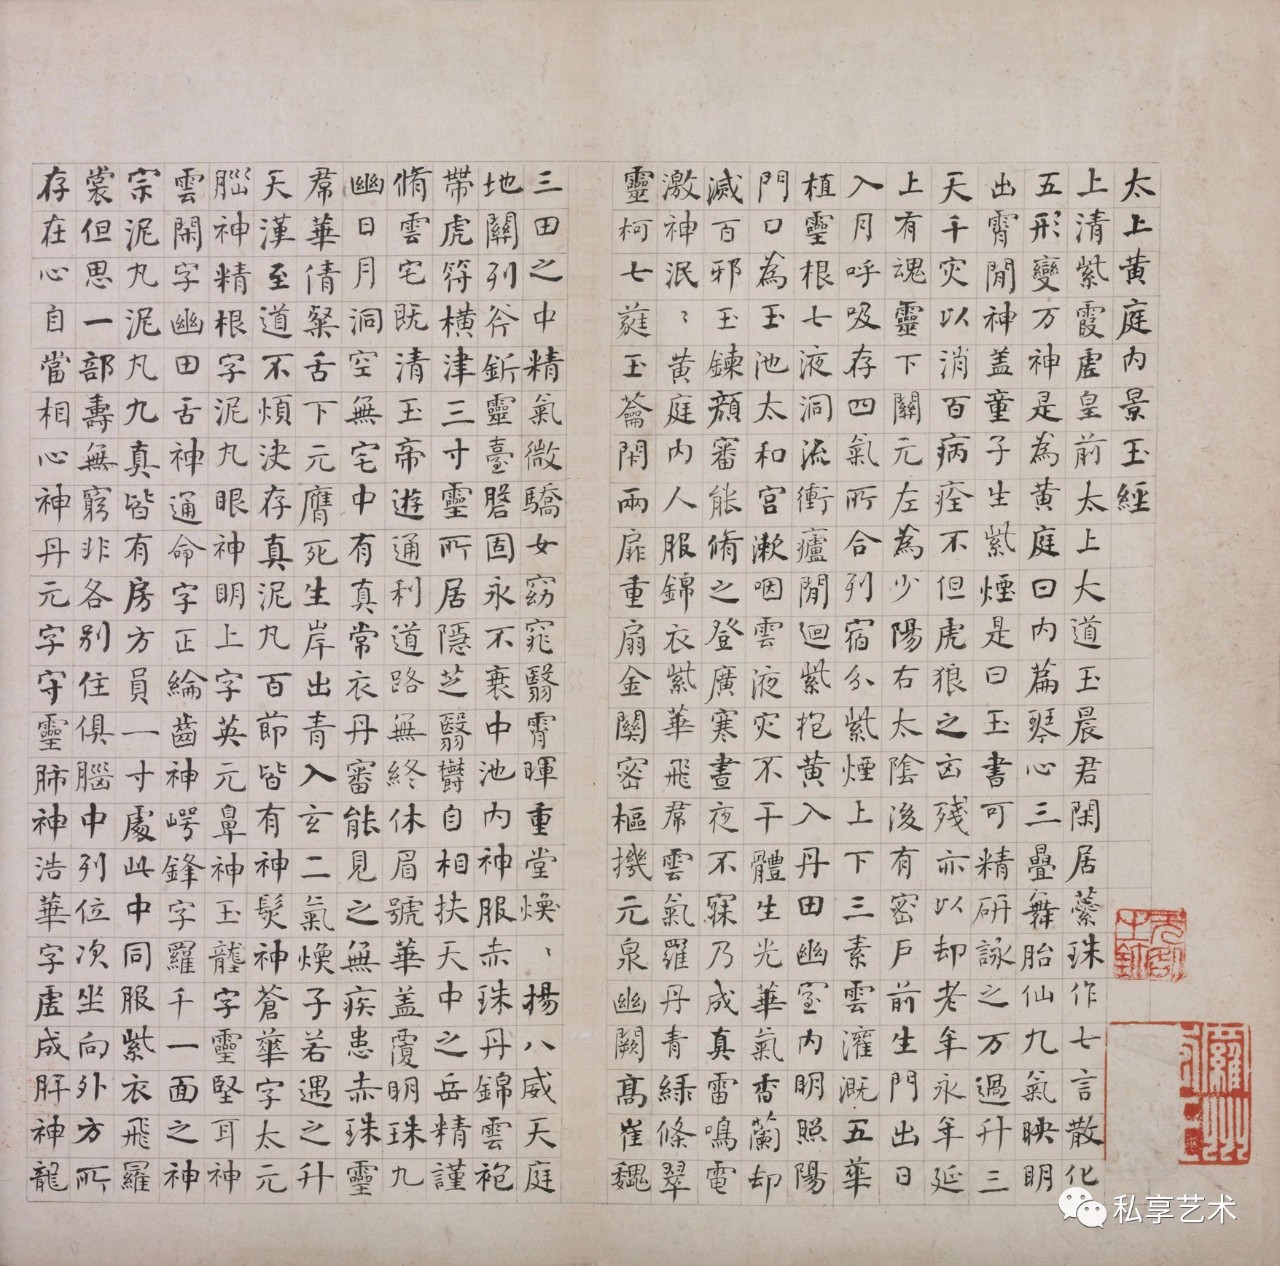 太上黃庭內景玉經
上清紫霞虛皇前太上大道玉晨君閑居蘂珠作七言散化
五形變万神是為黃庭曰內篇琴心三疊舞胎仙九氣映明
出霄閒神盖童子生紫煙是曰玉書可精研詠之万過升三
天千灾以消百病痊不但虎狼之凶殘亦以却老年永年延
上有魂靈下關元左為少陽右太陰後有密戶前生門出日
入月呼吸存四氣所合列宿分紫煙上下三素雲灌溉五華
植靈根七液洞流衝廬閒迴紫抱黃入丹田幽室內明照陽
門口為玉池太和宮漱咽雲液灾不干體生光華氣香蘭却
滅百邪玉鍊顏審能脩之登廣寒晝夜不寐乃成真雷鳴電
激神泯〻黃庭內人服錦衣紫華飛帬雲氣羅丹青綠條翠
靈柯七蕤玉蘥閇兩扉重扇金關密樞機元泉幽闕高崔巍
三田之中精氣微驕女窈窕翳霄暉重堂煥〻揚八威天庭
地關列斧釿靈臺盤固永不衰中池內神服赤珠丹錦雲袍
帶虎符橫津三寸靈所居隱芝翳欝自相扶天中之岳精謹
脩雲宅既清玉帝遊通利道路無終休眉號華盖覆明珠九
幽日月洞空無宅中有真常衣丹審能見之無疾患赤珠靈
帬華倩粲舌下元膺死生岸出青入玄二氣煥子若遇之升
天漢至道不煩決存真泥丸百節皆有神髮神蒼華字太元
腦神精根字泥丸眼神明上字英元鼻神玉壟字靈堅耳神
雲閑字幽田舌神通命字正綸齒神崿鋒字羅千一面之神
宗泥丸泥凡九真皆有房方員一寸處此中同服紫衣飛羅
裳但思一部壽無窮非各別住俱腦中列位次坐向外方所
存在心自當相心神丹元字守靈肺神浩華字虛成肝神龍
私享艺术